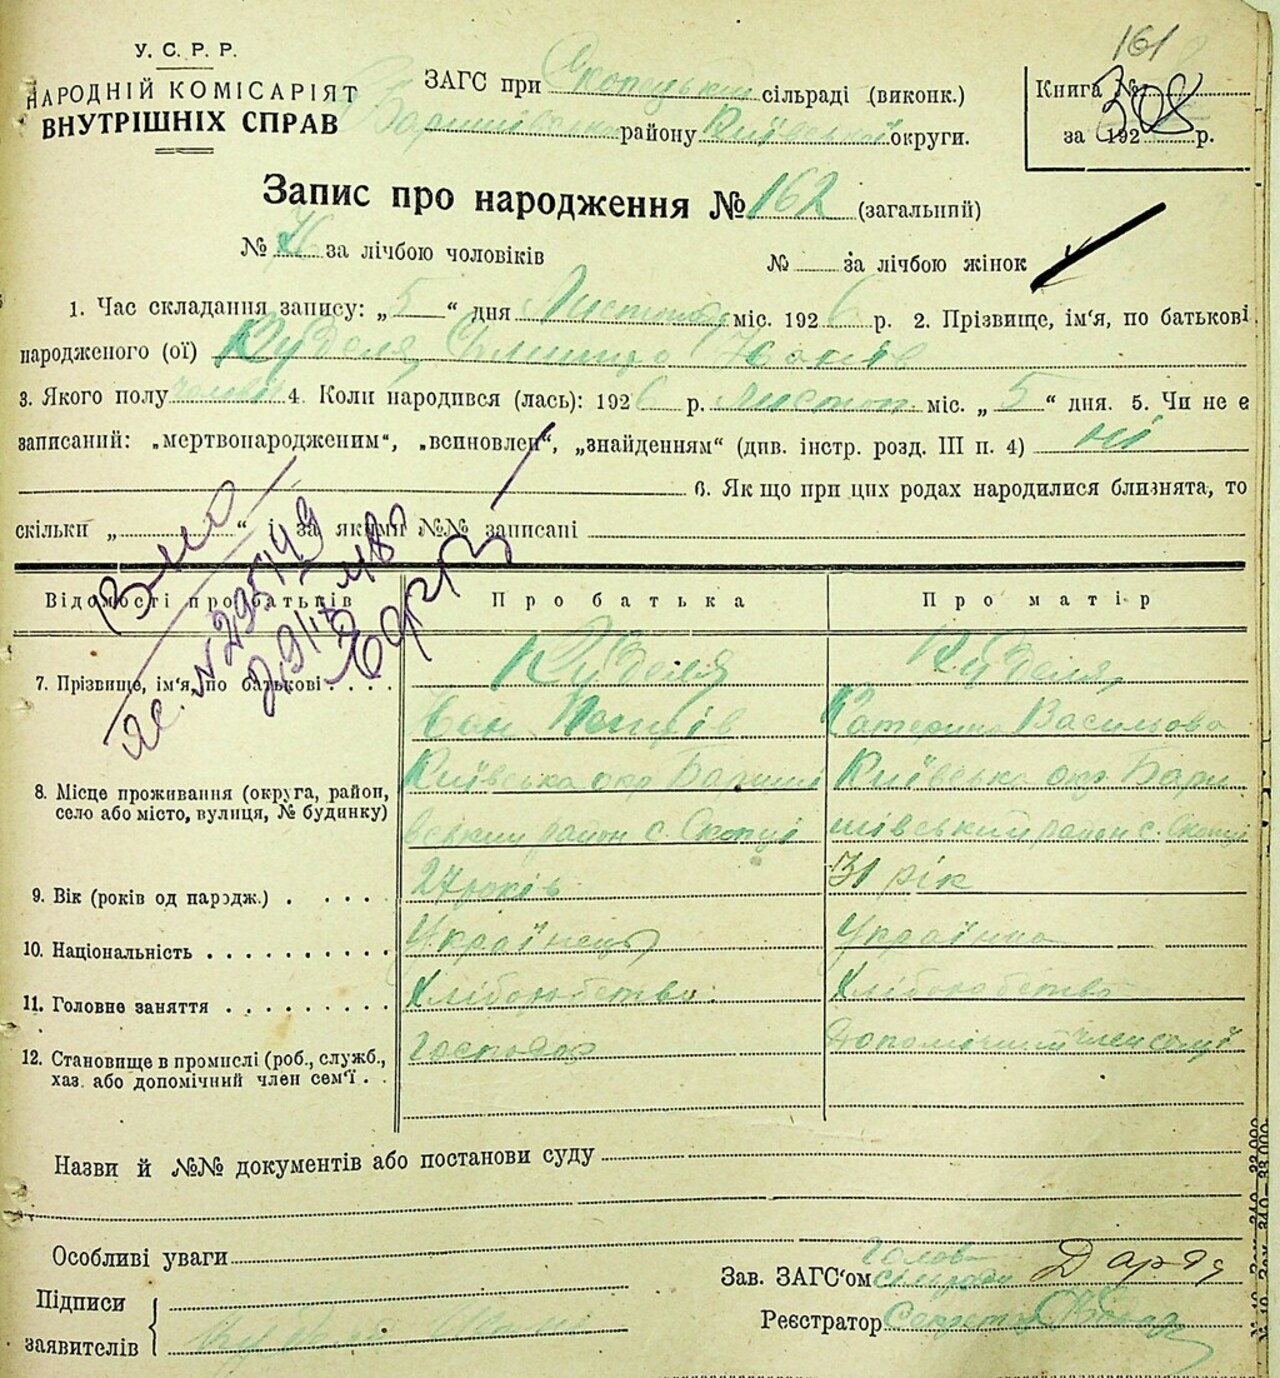 161
У. С. Р. Р.
НАРОДНІЙ КОМІСАРІЯТ
ВНУТРІШНІХ СПРАВ
ЗАГС при Скопецькій сільраді (виконк.)
Баришівського району Київської округи.
Книга № 308
за 192 р.
Запис про народження № 162 (загальний)
№ 76 за лічбою чоловіків
№ за лічбою жінок
1. Час складання запису: „5“ дня Листопада міс. 1926 р. 2. Прізвище, ім'я, по батькові
народженого (ої) Куделя Іванів
3. Якого полу чоловік 4. Коли народився (лась): 1926 р. Листоп міс. „5“ дня. 5. Чи не є
записаний: „мертвонародженим“, „всиновлен“, „знайденням“ (див. інстр. розд. III п. 4) ні
6. Як що при цих родах народилися близнята, то
скільки „ “ і за якими №№ записані
Відомості про батьків
Про батька
Про матір
7. Прізвище, ім'я, по батькові
Куделя
Куделя
Катерина Васильова
8. Місце проживання (округа, район,
село або місто, вулиця, № будинку)
Київська окр Бариші
вський район с. Скопці
Київська окр Бари
шівський район с. Скопці
9. Вік (років од народж.)
27 років
31 рік
10. Національність
Українець
Українка
11. Головне заняття
Хліборобство
Хліборобство
12. Становище в промислі (роб., служб.,
хаз. або допомічний член сем'ї
господар
Допомічний член семї
Назви й №№ документів або постанови суду
Особливі уваги
Підписи
заявителів
Зав. ЗАГС'ом
Голова
сільради
Реєстратор Секретар